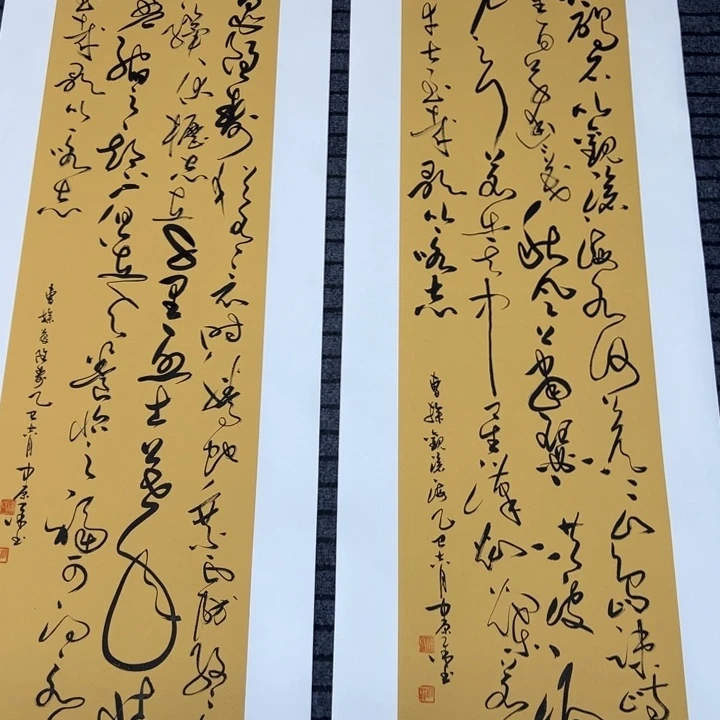 碣石以觀滄海水何澹澹山島竦峙
百草豐茂秋風蕭瑟洪波
月之行若出其中星漢燦爛若
幸甚至哉歌以詠志
曹操觀滄海乙巳六月中原書
龜雖壽猶有竟時騰蛇乘霧終
驥伏櫪志在千里烈士暮年壯
盈縮之期不但在天養怡之福可得永
至哉歌以詠志
曹操龜雖壽乙巳六月中原書